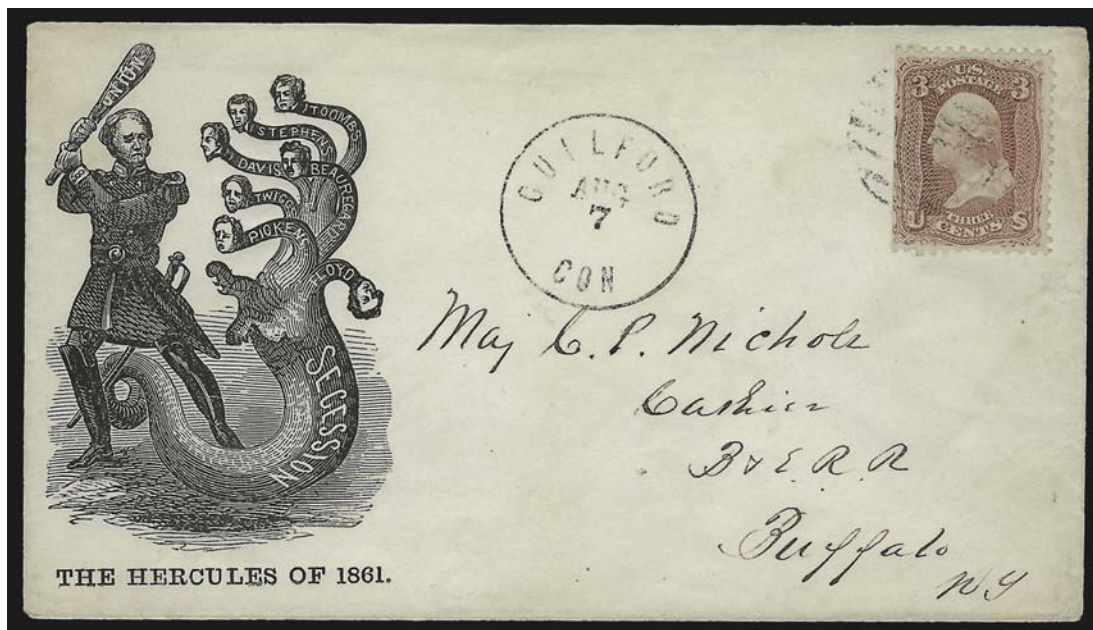 UNION
TOOMBS
STEPHENS
DAVIS
BEAUREGARD
TWIGGS
PICKENS
FLOYD
SECESSION
THE HERCULES OF 1861.
GUILFORD
AUG
7
CON
3 U.S. 3
POSTAGE
U THREE S
CENTS
Maj C. P. Nichols
Cashier
B & E. R R
Buffalo
N Y